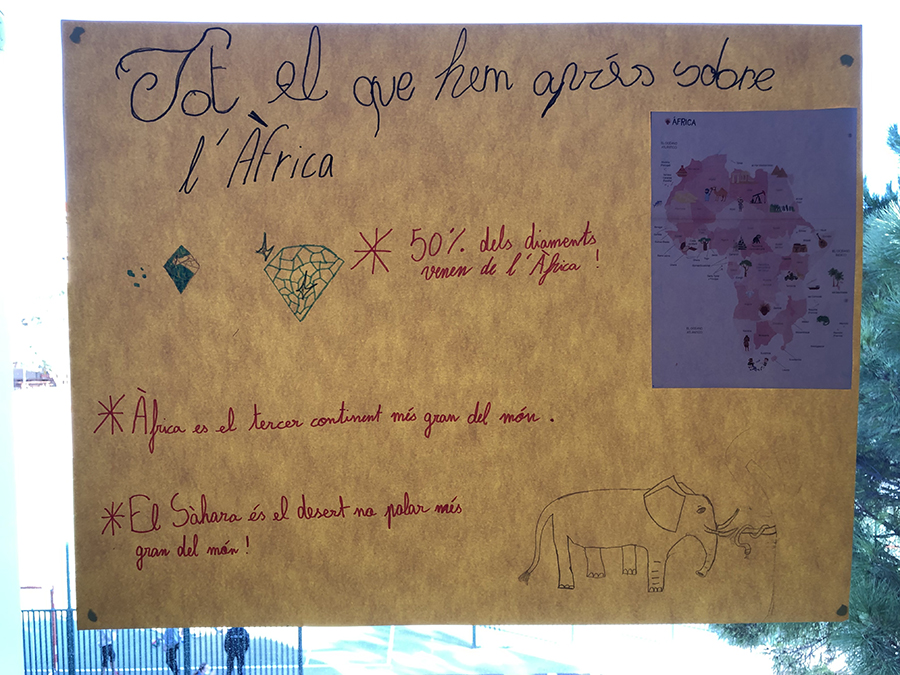 Tot el que hem après sobre
l'Àfrica
ÀFRICA
50% dels diaments
venen de l'Àfrica !
Àfrica es el tercer continent més gran del món .
El Sàhara és el desert no polar més
gran del món !